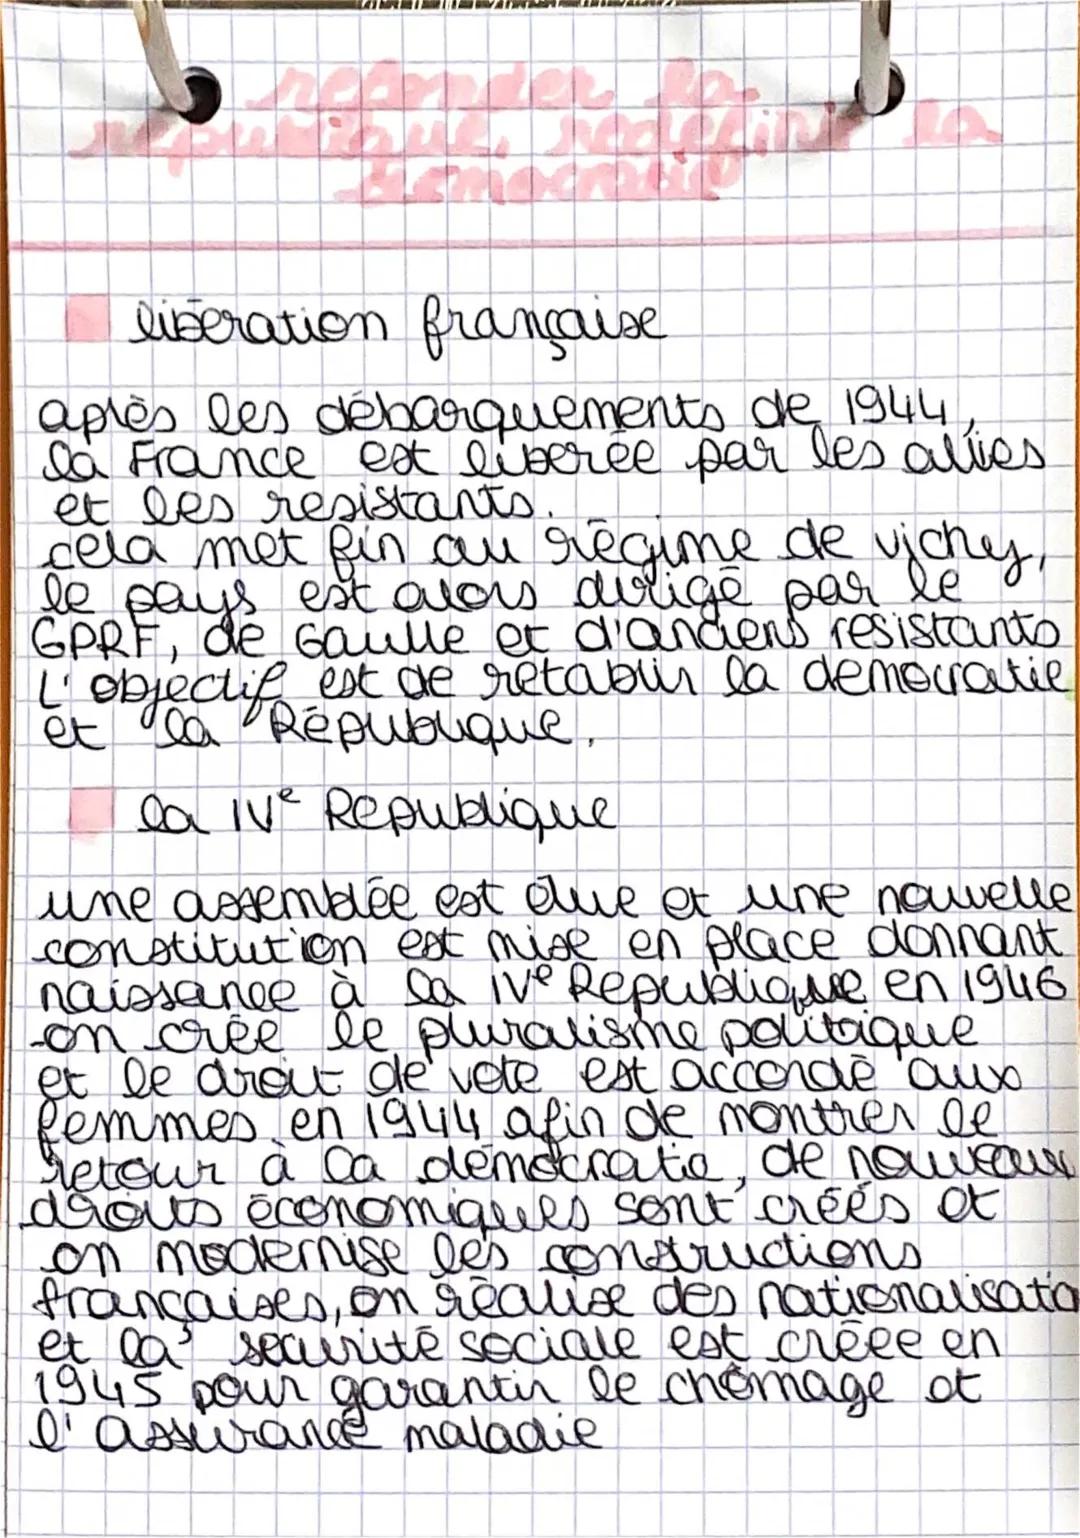 refonder la
république, redéfinir la
democratie
libération française
après les débarquements de 1944,
la France est libérée par les alliés
et les resistants.
cela met fin au régime de vichy,
le pays est alors dirigé par le
GPRF, de Gaulle et d'anciens resistants
L'objectif est de retablir la democratie
et la République.
la IVe Republique
une assemblée est élue et une nouvelle
constitution est mise en place donnant
naissance à la IVe Republique en 1946
on crée le pluralisme politique
et le droit de vote est accordé aux
femmes en 1944 afin de montrer le
retour à la démocratie, de nouveaux
droits économiques sont créés et
on modernise les constructions
françaises, on réalise des nationalisatio
et la sécurité sociale est créée en
1945 pour garantir le chômage et
l'assurance maladie